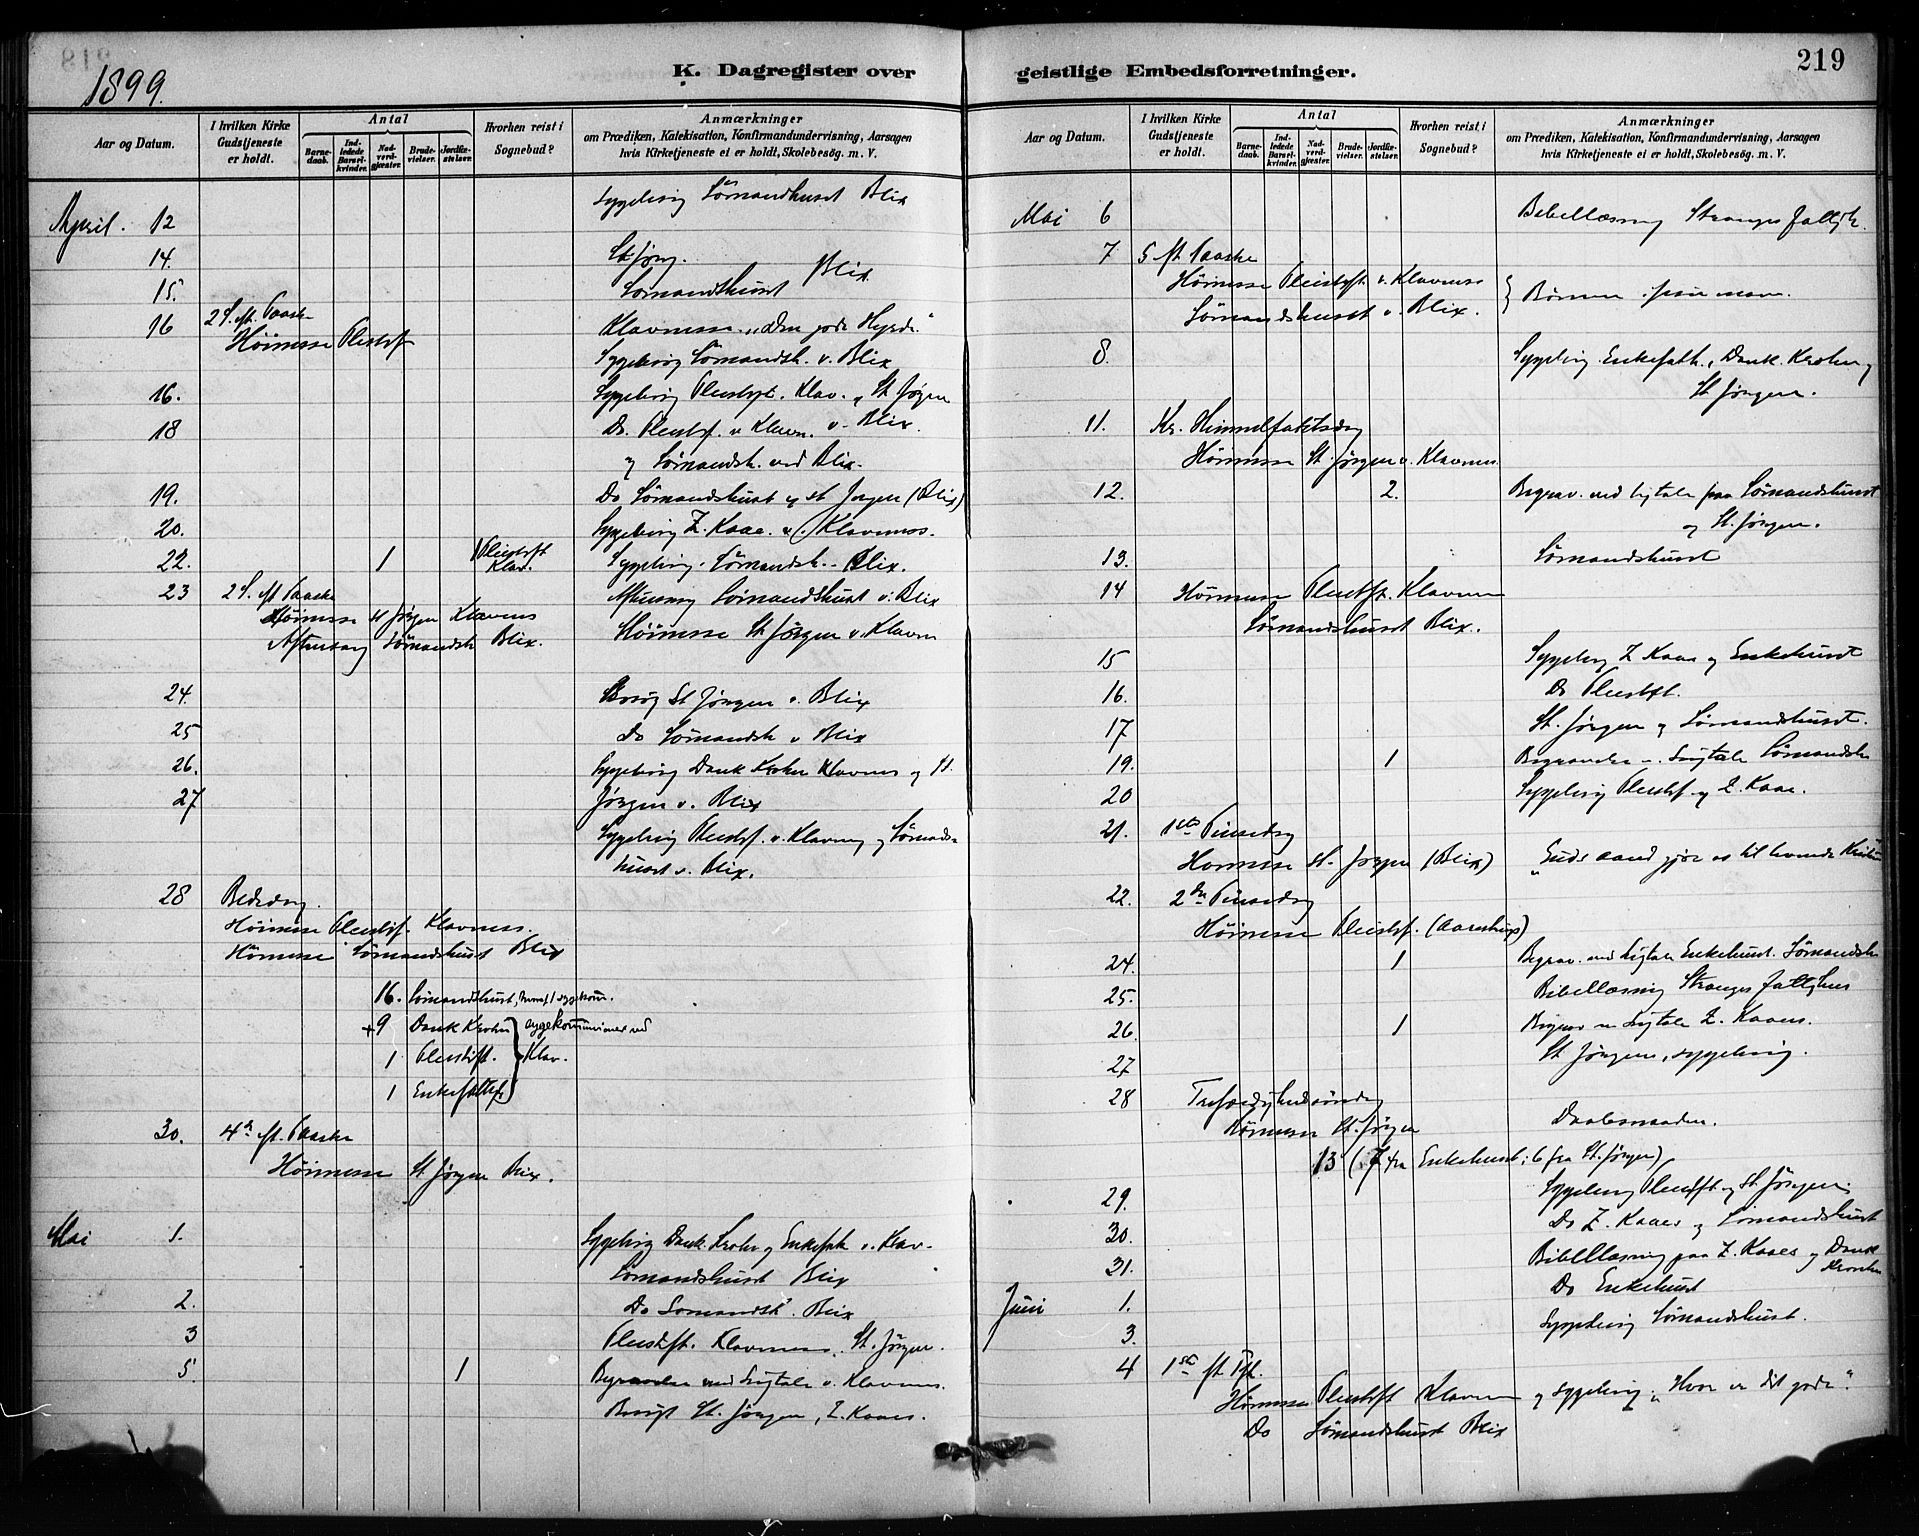 1899.
K. Dagregister over
Aar og Datum.
I hvilken Kirke Gudstjeneste er holdt.
Antal
Barnedaab.
Indledede Barselkvinder.
Nadverdgjester.
Brudevielser.
Jordfæstelser.
Hvorhen reist i Sognebud?
Anmærkninger
om Prædiken, Katekisation, Konfirmandundervisning, Aarsagen
hvis Kirketjeneste ei er holdt, Skolebesög. m. V.
Sygebesøg Sömandshuset Blix
April. 12
14. St Jørg.
15. Sømandshuset Blix
16 2 S. eft. Paaske
Höimesse Pleiestif Klaveness "den gode Hyrde."
Sygebesøg Sömandsh. v. Blix
16. Sygebesøg Pleiestift. Klav. St Jörgen
18 Do. Pleiestif. v Klaven. v. Blix.
og Sömandsh. ved Blix.
19. Do Sömandshuset og St Jörgen (Blix)
20. Sygebesøg Z. Kaae. v. Klaveness.
22. 1 1 Pleiestift Klav. Sygebesøg. Sömandsh. Blix.
23 2 S. eft Paaske Aftensang Sömandshuset v. Blix
Höimesse St Jörgen Klavenes Höimesse St Jörgen v. Klaven
Aftensang Sömandsh Blix.
24. Besøg St Jörgen v. Blix
25 Do Sömandsh v Blix
26. Sygebesøg Dank Krohn Klavenes og St.
27 Jörgen v. Blix
Sygebesøg Pleiestif. v. Klavenes og Sömands-
huset v. Blix.
28 Bededag.
Höimesse Pleiestif. Klaveness.
Höimesse Sömandshuset Blix
16. Sömandshuset, sygekom.
+9 Dank Krohn } sygekommunioner ved
1 Pleiestift. } Klav.
1 Enkefattigh }
30. 4d eft. Paaske
Höimesse St Jörgen Blix.
Mai 1. Sygebesøg Dank. Krohn og Enkefatt v. Klav.
Sömandshuset Blix
2. Do Sömandsh. Blix
3 Pleiestift. Klavenes, St. Jörgen.
5. 1 Begravelse med Ligtale v. Klavenes.
Besögt St. Jörgen, Z. Kaaes.
219
geistlige Embedsforretninger.
Aar og Datum.
I hvilken Kirke Gudstjeneste er holdt.
Antal
Barnedaab.
Indledede Barselkvinder.
Nadverdgjester.
Brudevielser.
Jordfæstelser.
Hvorhen reist i Sognebud?
Anmærkninger
om Prædiken, Katekisation, Konfirmandundervisning, Aarsagen
hvis Kirketjeneste ei er holdt, Skolebesög. m. V.
Mai 6 Bibellæsning Stranges fattigh.
7 5 eft. Paaske
Höimesse Pleiestift. v. Klaveness
Sömandshuset v. Blix. } Bönnen
8. Sygebesøg Enkefatth., Dank. Krohn og
St Jörgen.
11. Kr. Himmelfartsdag
Höimesse St. Jörgen v. Klavenes
12. 2. Begrav. med Ligtale paa Sömandshuset
og St. Jörgen.
13. Sömandshuset
14 Höimesse Pleiestift. Klavenes
Sömandshuset Blix.
15 Sygebesøg Z Kaaes og Enkehuset
16. Do Pleiestift.
17 St. Jörgen og Sömandshuset.
19. 1 Begravelse m. Ligtale Sömandsh
20 Sygebesøg Pleiestif. og Z. Kaae.
21. 1ste Pinsedag
Höimesse St. Jörgen (Blix) "Guds aand gjør os til levende Kristne
22. 2den Pinsedag
Höimesse Pleiestif. (Aarestrup)
24. 1 Begrav. med Ligtale Enkehuset. Sömandsh
25. Bibellæsning Stranges fattighus
26 1 Begrav m Ligtale Z. Kaaes.
27 St Jörgen, sygebesøg.
28 Trefoldighedssöndag Daabsnaaden.
Höimesse St. Jörgen
13 (7 fra Enkehuset; 6 fra St. Jörgen)
29. Sygebesøg Pleiestift og St Jörgen
30. Do Z. Kaaes og Sömandshuset
31. Bibellæsning paa Z. Kaaes og Dank
Krohn
Juni 1. Do Enkehuset
3. Sygebesøg Sömandshuset.
4 1ste eft Tfh.
Höimesse Pleiestift Klavenes og sygebesøg "Hvor er det gode"
Do Sömandshuset Blix